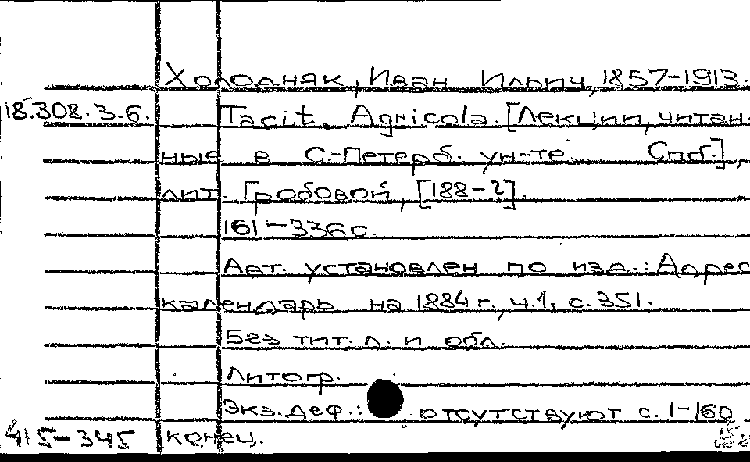 Холодняк, Иван Ильич, 1857-1913.
18.308.3.6. Tacit. Agricola. [Лекции, читан-
ные в С.-Петерб. ун-те. Спб.],
лит. Гробовой, [188-?].
161-336 с.
Авт. установлен по изд.: Адрес
календарь на 1884 г., ч.1, с. 351.
Без тит. л. и обл.
Литогр.
Экз. деф.: отсутствуют с. 1-160
415-345 конец.